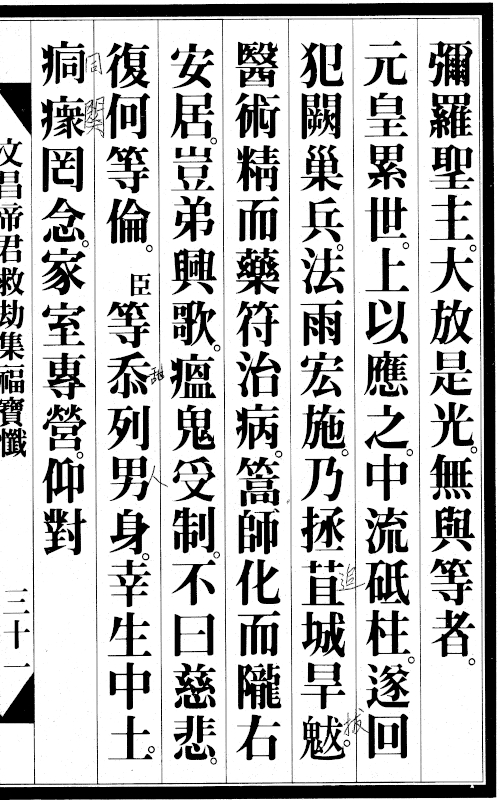 彌羅聖主。大放是光。無與等者。
元皇累世。上以應之。中流砥柱。遂回
犯闕巢兵。法雨宏施。乃拯苴城旱魃。
追
拔
醫術精而藥符治病。篙師化而隴右
安居。豈弟興歌。瘟鬼受制。不曰慈悲。
復何等倫。臣等忝列男身。幸生中土。
人
痌瘝罔念。家室專營。仰對
同
文昌帝君救劫集福寶懺
三十一